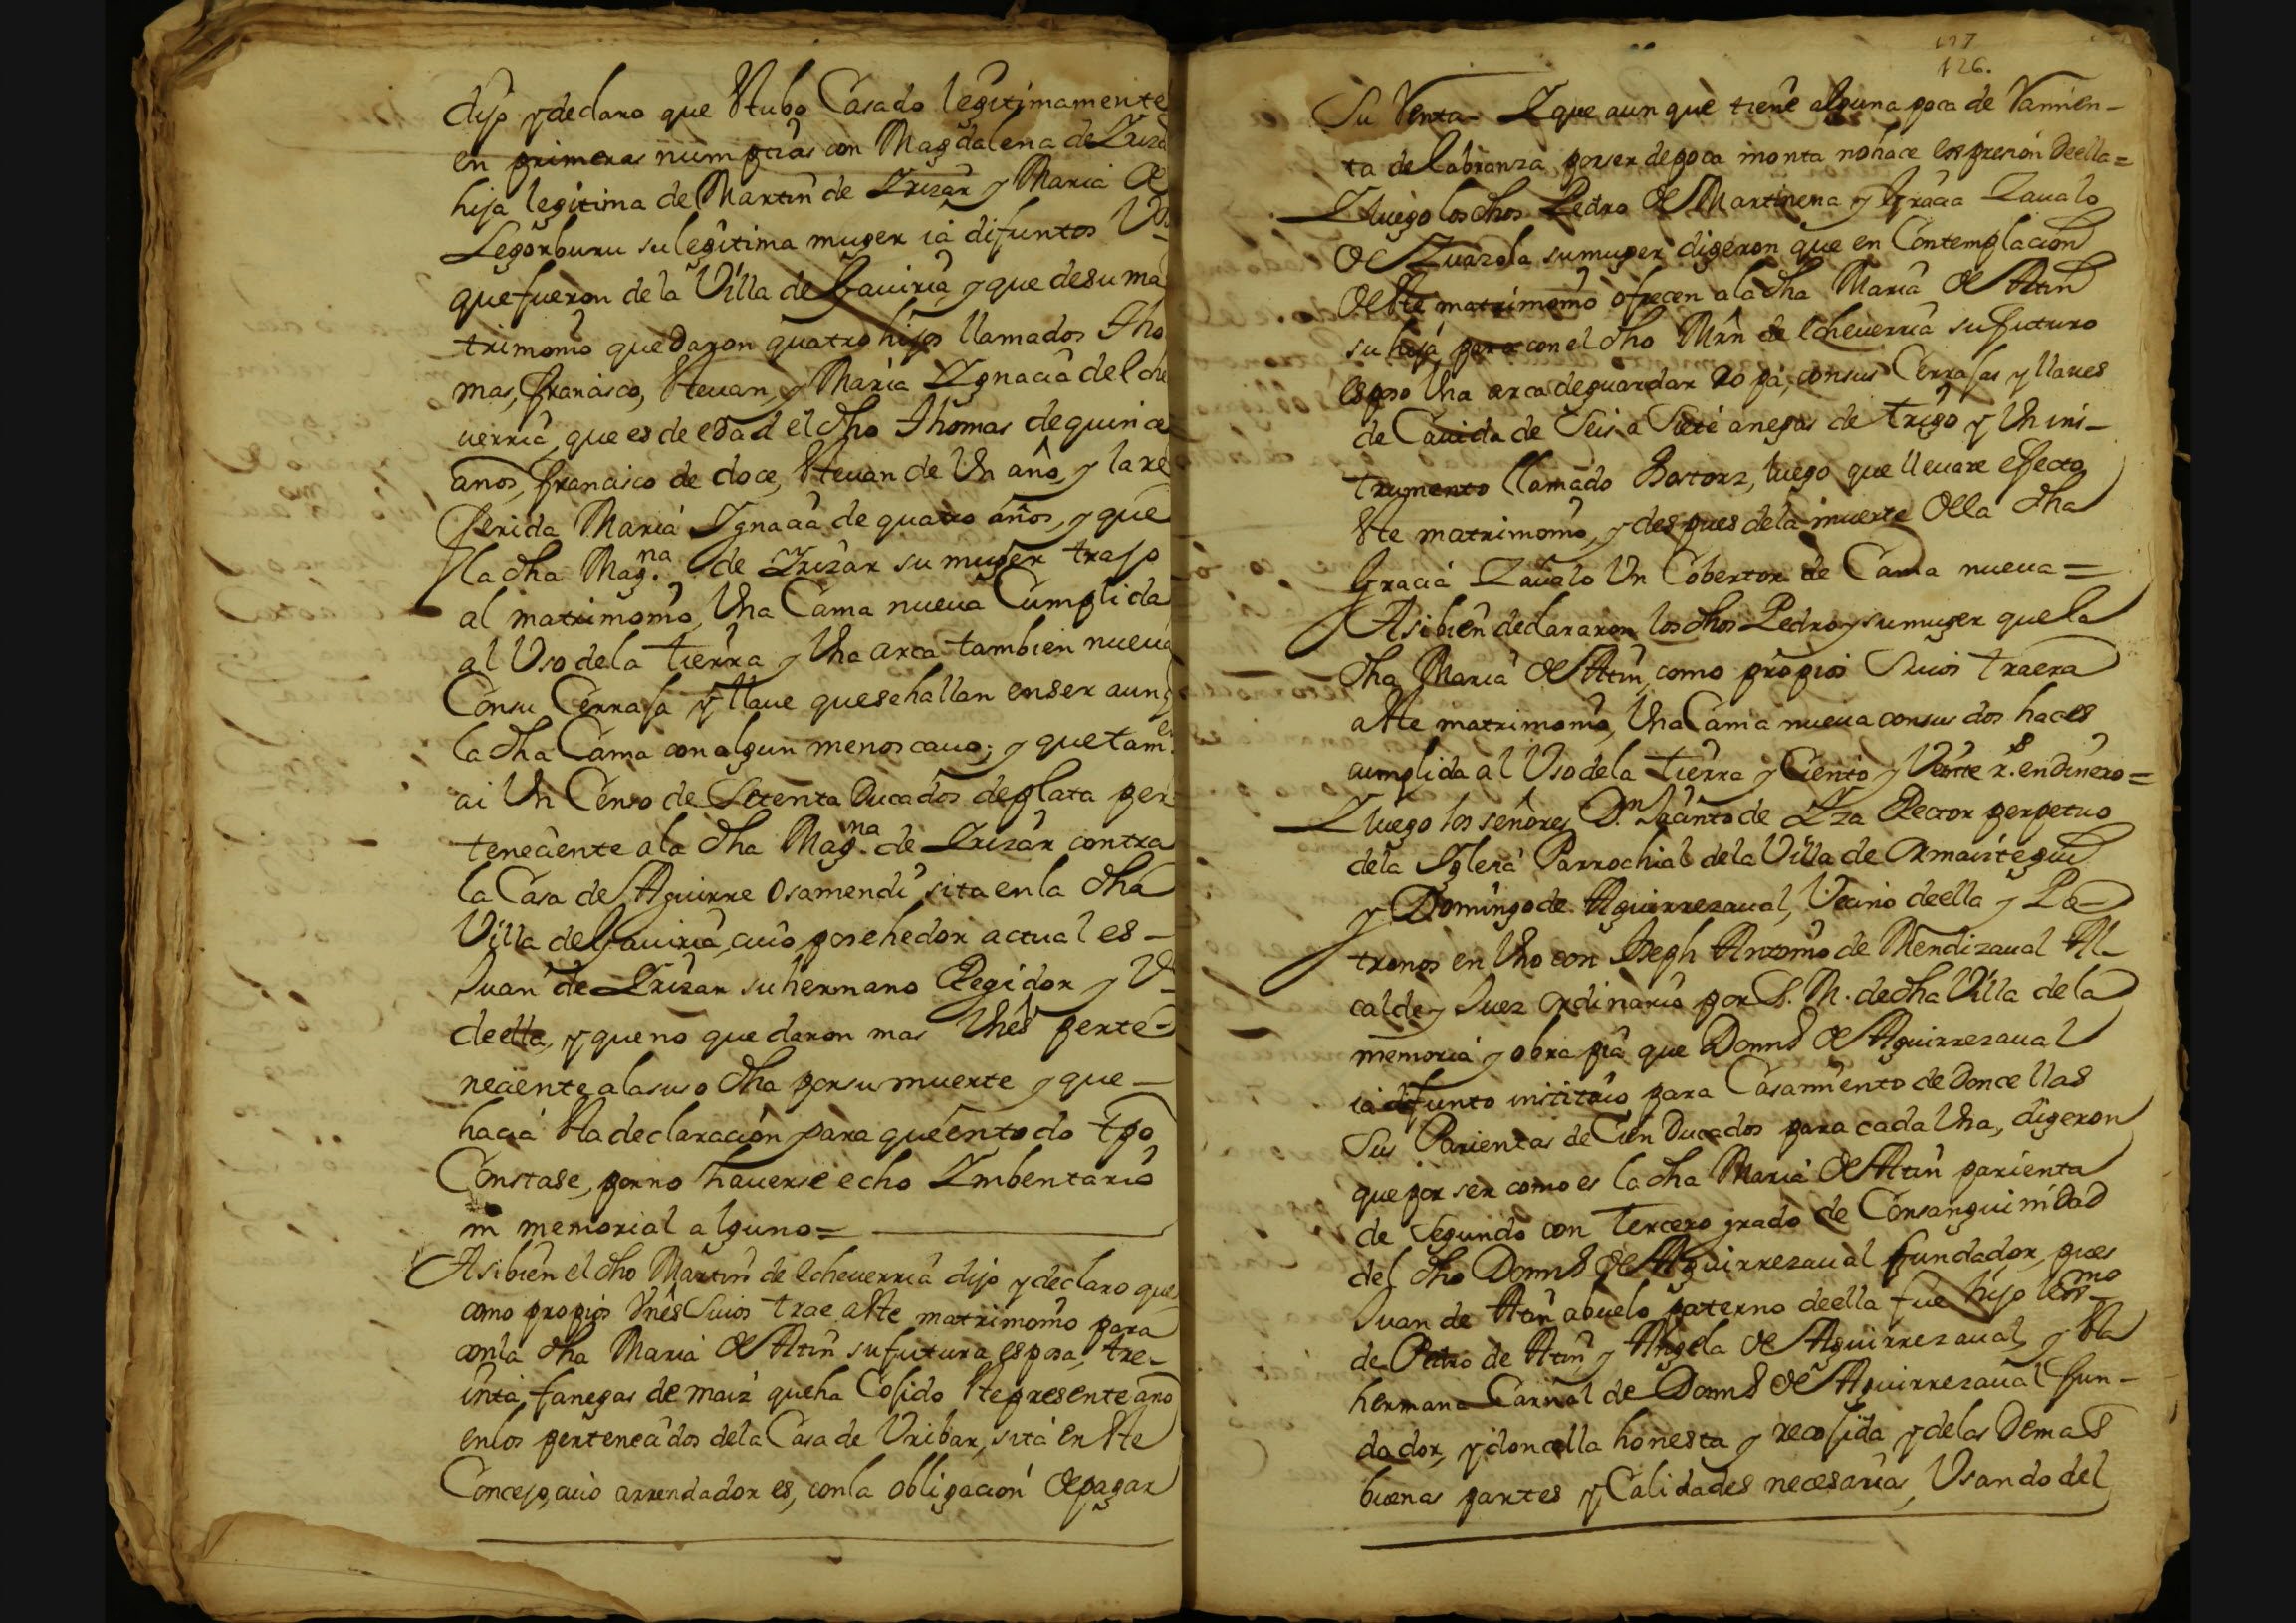 dijo y declaro que Stubo Casado legitimamente
en primeras numpcias con Magdalena de Yriza
hija legitima de Martin de Yrizar y Maria de
Legorburu su legitima muger ia difuntos Vs
que fueron de la Villa de Gaviria, y que de su ma
trimonio quedaron quatro hijos llamados Tho
mas, Francisco, Stevan, y Maria Ygnacia de Eche
verria, que es de edad el dho Thomas de quince
años, Francisco de doce, Stevan de Un año, y la re
ferida Maria Ygnacia de quatro años, y que
la dha Magna. de Yrizar su muger trajo
al matrimonio, Una Cama nueva Cumplida
al Uso de la tierra y Una arca tambien nueva
Con su Cerraja y llave que se hallan en ser aunq
la dha Cama con algun menoscavo; y que tamen.
ai Un Censo de Setenta Ducados de plata per
teneciente a la dha Magna. de Yrizar contra
la Casa de Aguirre Osamendi, sita en la dha
Villa de Gaviria, cuio posehedor actual es –
Juan de Yrizar su hermano Regidor y Vº
de ella, y que no quedaron mas Vnes perte-
neciente a la suso dha por su muerte y que –
hacia Sta declaracion para que en todo tpo
Constase, por no haverse echo Ymbentario
ni memorial alguno =
Asi bien el dho Martin de Echeverria dijo y declaro que
como propios Vnes Suios trae a Ste matrimonio para
con la dha Maria de Atin su futura esposa, tre-
inta fanegas de maiz que ha Cojido Ste presente año
en los pertenecidos de la Casa de Uribar, sita en Ste
Concejo, cuio arrendador es, con la obligacion de pagar
127
126.
Su Renta – Y que aunque tiene alguna poca de Vamien-
ta de labranza por ser de poca monta no hace expresion de ella =
Y luego los dhos Pedro de Martinena y Gracia Zavalo
de Zuazola su muger digeron que en Contemplacion
de Ste matrimonio ofrecen a la dha Maria de Atin
su hija para con el dho Mrn de Echeverria su futuro
esposo Una arca de guardar Ropa, con sus Cerrajas y llaves
de Cavida de Seis a Siete anegas de trigo y Un ins-
trumento llamado Bortorz, luego que llevare effecto
Ste matrimonio, y despues de la muerte de la dha
Gracia Zavalo Un Cobertor de Cama nueva =
Asi bien declararon los dhos Pedro y su muger que la
dha Maria de Atin, como propios Suios traera
a Ste matrimonio, Una Cama nueva con sus dos haces
cumplida al Uso de la tierra y Ciento y Veinte rs. en dinero =
Y luego los señores Dn. Jacinto de Yza Rector perpetuo
de la Yglesia Parrochial de la Villa de Ormaiztegui
y Domingo de Aguirrezaval, Vecino de ella y Pa-
tronos en Uno con Joseph Antonio de Mendizaval Al-
calde y Juez ordinario por S. M. de dha Villa de la
memoria y obra pia que Domo de Aguirrezaval
ia difunto instituio para Casamiento de Doncellas
Sus Parientas de Cien Ducados para cada Una, digeron
que por ser como es la dha Maria de Atin parienta
de Segundo con Tercero grado de Consanguinidad
del dho Domo de Aguirrezaval fundador, pues
Juan de Atin abuelo paterno de ella fue hijo legmo
de Pedro de Atin y Angela de Aguirrezaval, y Sta
hermana Carnal de Domo de Aguirrezaval Fun-
dador, y doncella honesta y recojida y de las Demas
buenas partes y Calidades necesarias, Usando del